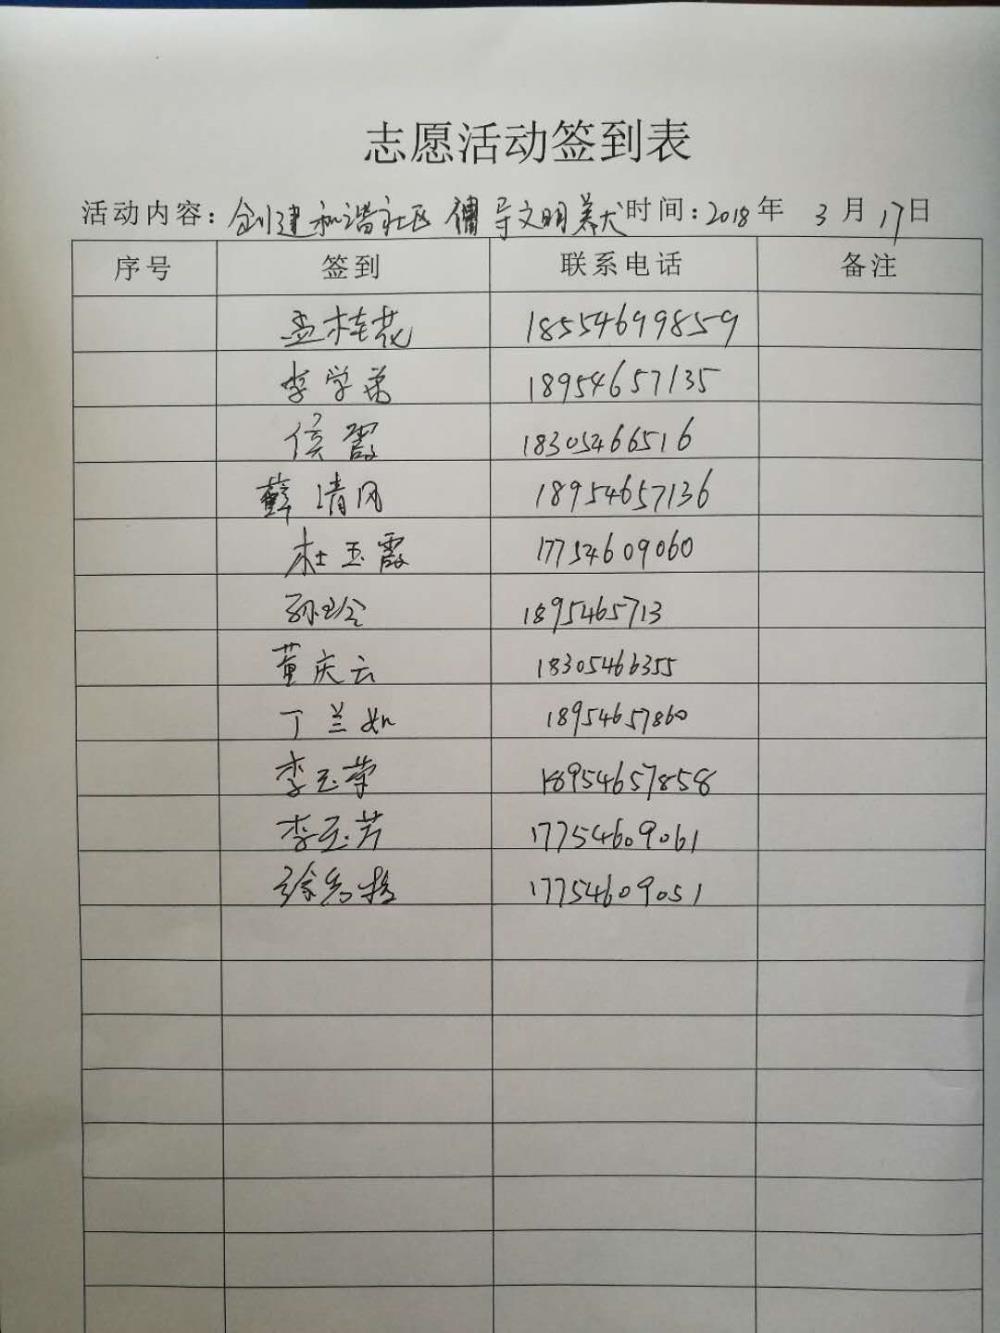 志愿活动签到表
活动内容：创建和谐社区 倡导文明养犬 时间：2018年 3月17日
序号 签到 联系电话 备注
孟桂花 18554699859
李学弟 18954657135
侯霞 18305466516
薛清风 18954657136
杜玉霞 17754609060
孙玲 1895465713
董庆云 18305466355
丁兰如 18954657860
李玉荣 18954657858
李玉芳 17754609061
徐秀 17754609051